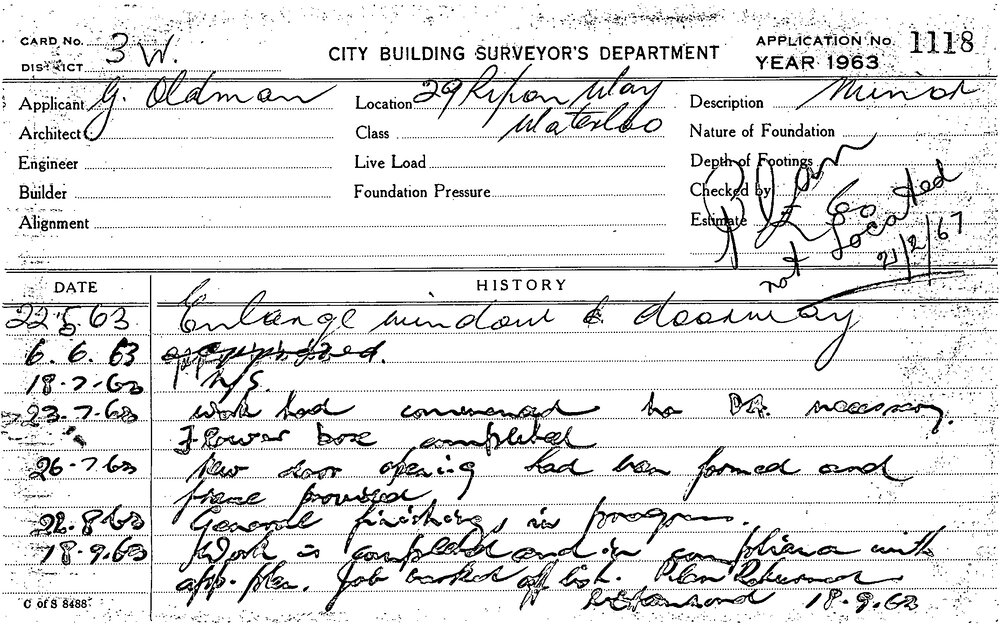 CARD No. 3 W.
DISTRICT
CITY BUILDING SURVEYOR'S DEPARTMENT
APPLICATION No. 1118
YEAR 1963
Applicant G. Oldman
Location 29 Ripon Way
Waterloo
Description Minor
Architect
Class
Nature of Foundation
Engineer
Live Load
Depth of Footings
Builder
Foundation Pressure
Checked by
Alignment
Estimate £ 60
Plan
not Located
21/2/67
DATE HISTORY
22.5.63. Enlarge window & doorway
6.6.63 approved.
18-7-63 N/S.
23-7-63 Work had commenced no necessary.
Flower box completed
26-7-63 New door opening had been formed and
frame provided
22.8.63 General finishing, in progress.
18.9.63 Work is completed and in compliance with
app. plan. Job marked off list. Plan Returned
18-9-63
C of S 8488